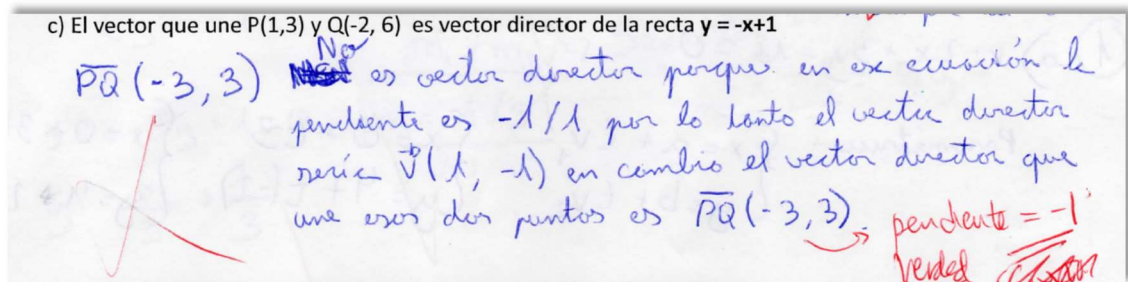 c) El vector que une P(1,3) y Q(-2, 6) es vector director de la recta y = -x+1
PQ (-3, 3) No es vector director porque en esa ecuación la
pendiente es -1/1 por lo tanto el vector director
sería v(1, -1) en cambio el vector director que
une esos dos puntos es PQ(-3, 3).
pendiente = -1
verdad